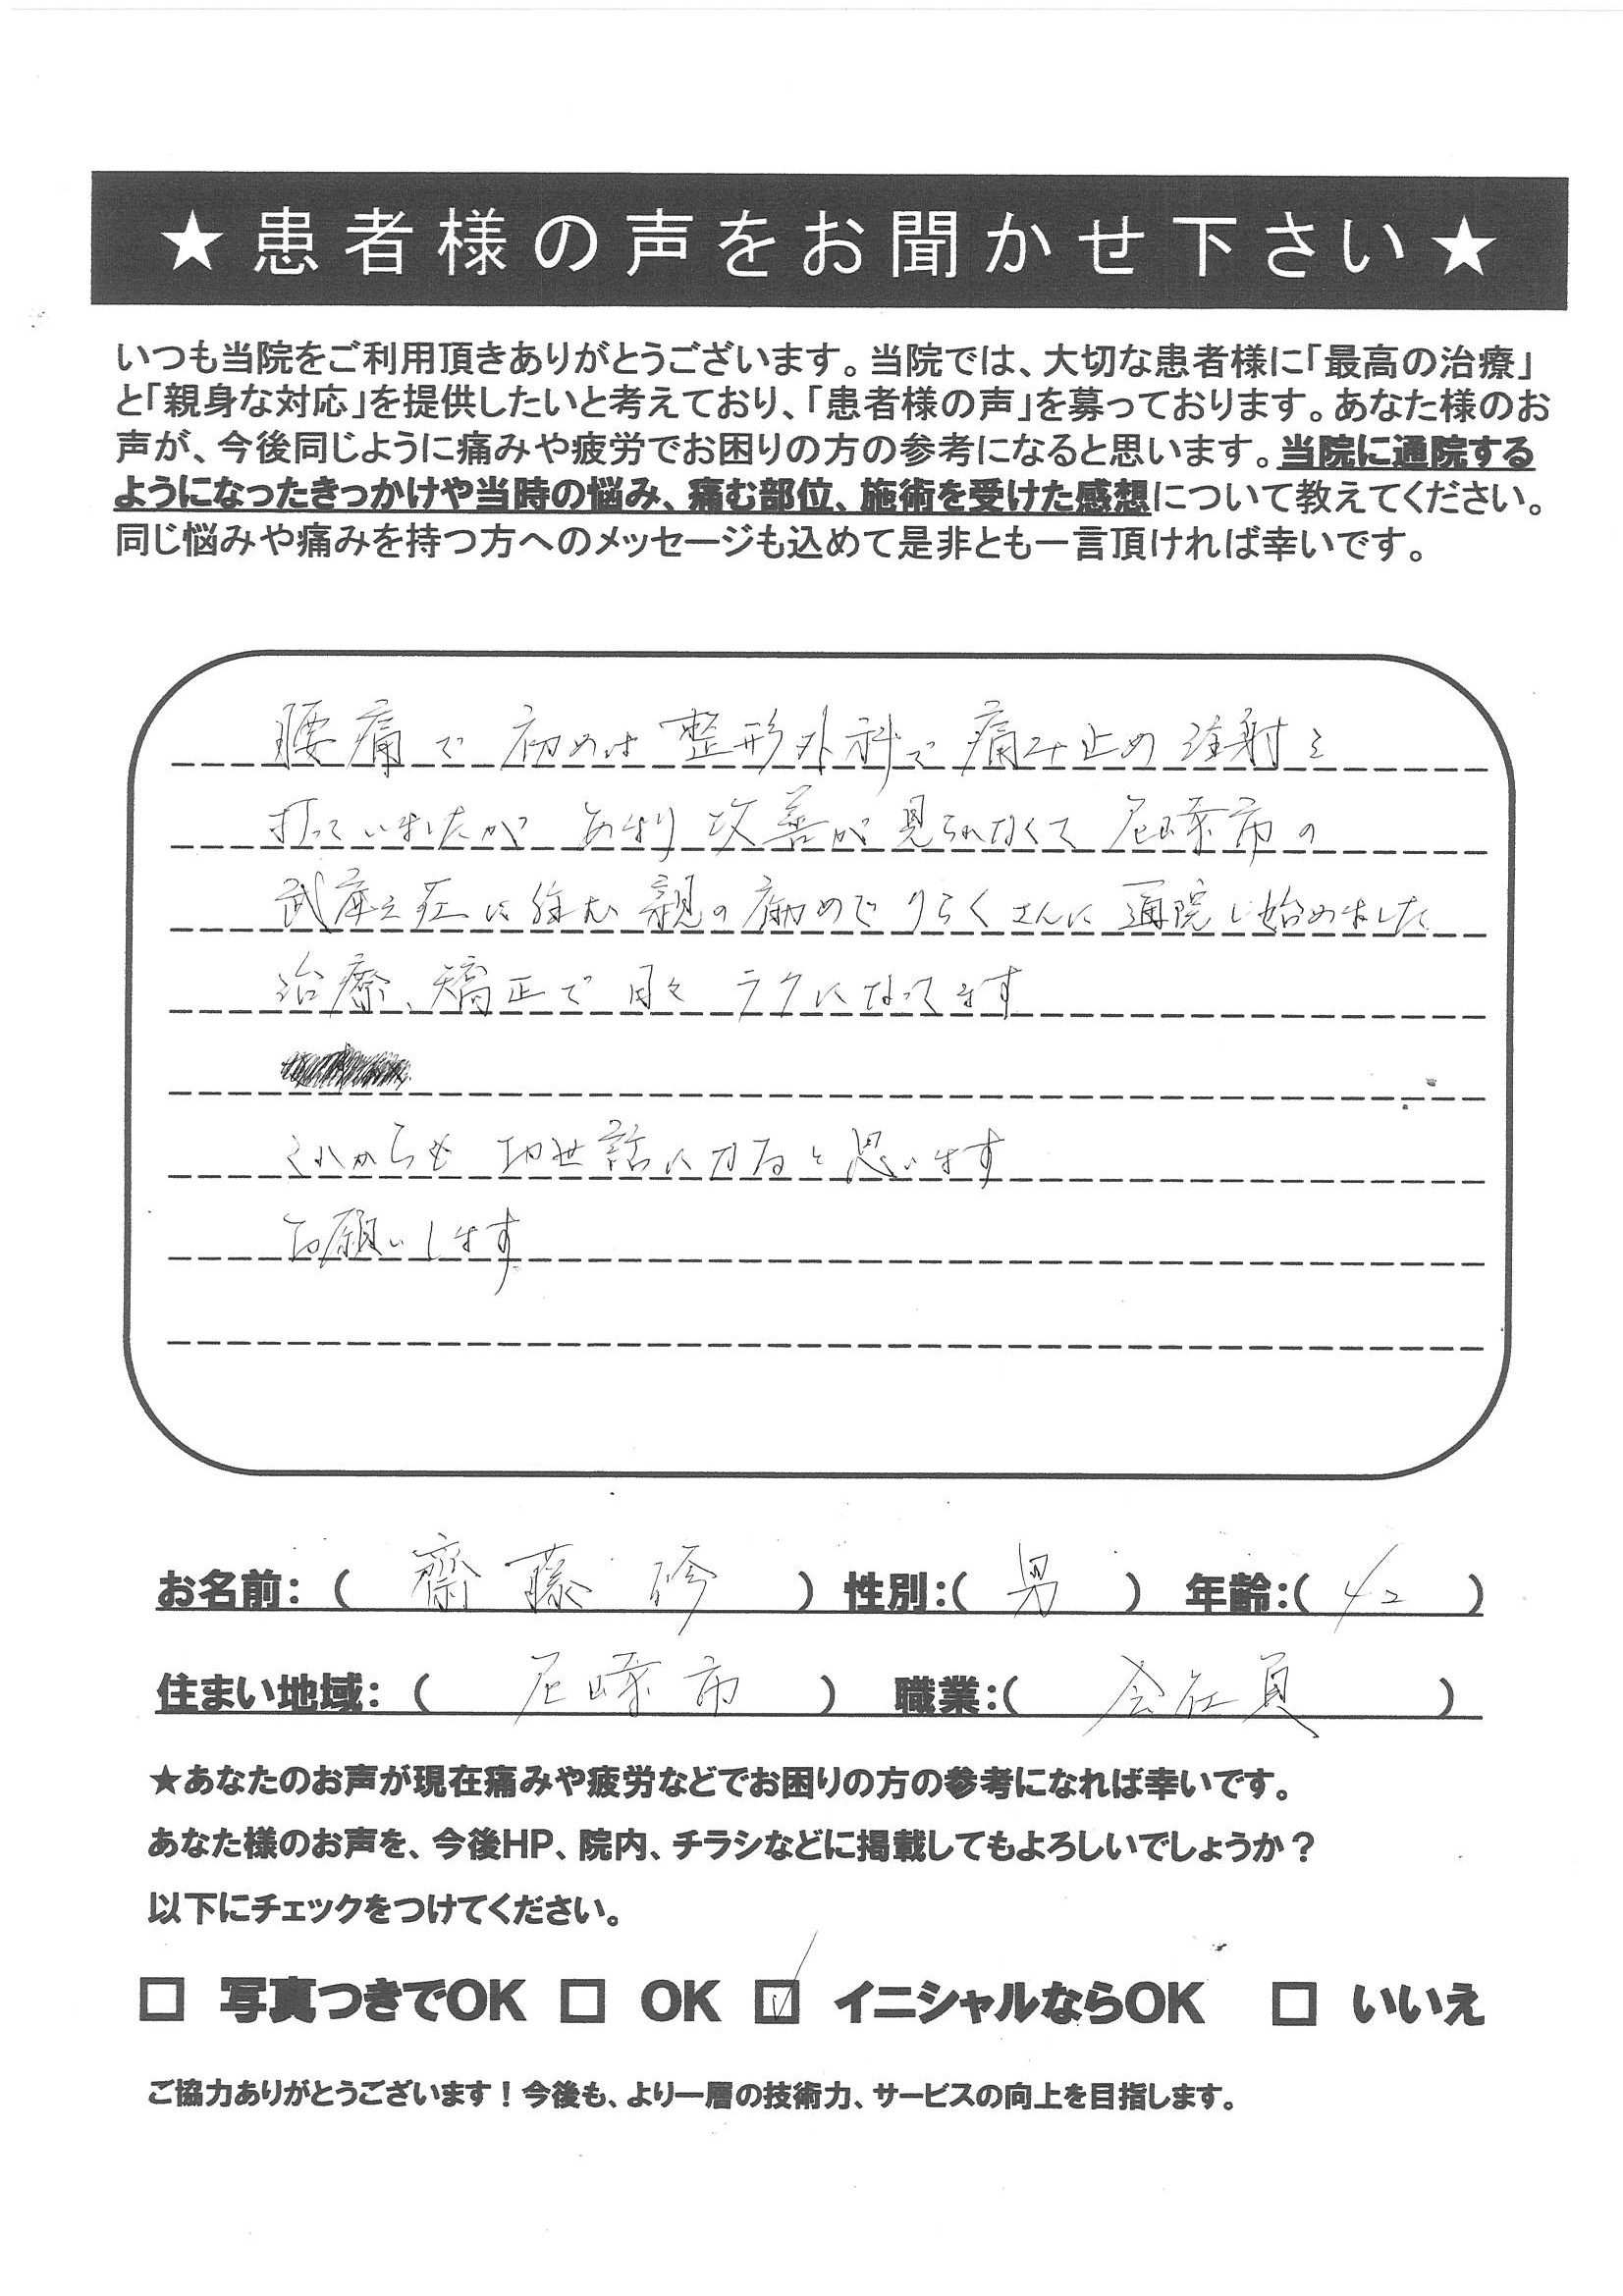 ★患者様の声をお聞かせ下さい★
いつも当院をご利用頂きありがとうございます。当院では、大切な患者様に「最高の治療」
と「親身な対応」を提供したいと考えており、「患者様の声」を募っております。あなた様のお
声が、今後同じように痛みや疲労でお困りの方の参考になると思います。当院に通院する
ようになったきっかけや当時の悩み、痛む部位、施術を受けた感想について教えてください。
同じ悩みや痛みを持つ方へのメッセージも込めて是非とも一言頂ければ幸いです。
腰痛で初めは整形外科で痛み止め注射を
打っていましたがあまり改善が見られなくて尼崎市の
武庫之荘に住む親の勧めでりらくさんに通院し始めました
治療、矯正で日々ラクになってます
これからもお世話になると思います
お願いします
お名前:( 齋藤 ) 性別:( 男 ) 年齢:( 42 )
住まい地域:( 尼崎市 ) 職業:( 会社員 )
★あなたのお声が現在痛みや疲労などでお困りの方の参考になれば幸いです。
あなた様のお声を、今後HP、院内、チラシなどに掲載してもよろしいでしょうか?
以下にチェックをつけてください。
□ 写真つきでOK □ OK ☑ イニシャルならOK □ いいえ
ご協力ありがとうございます!今後も、より一層の技術力、サービスの向上を目指します。